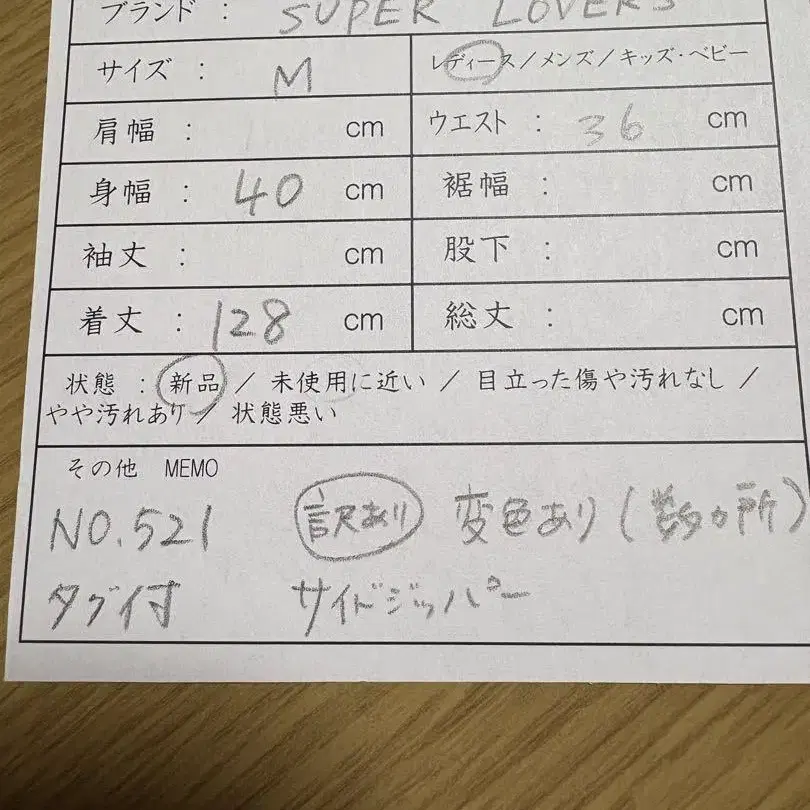 ブランド： SUPER LOVERS
サイズ： M レディース／メンズ／キッズ・ベビー
肩幅： cm ウエスト： 36 cm
身幅： 40 cm 裾幅： cm
袖丈： cm 股下： cm
着丈： 128 cm 総丈： cm
状態：新品／未使用に近い／目立った傷や汚れなし／
やや汚れあり／状態悪い
その他 MEMO
NO.521 訳あり 変色あり(数ヵ所)
タグ付 サイドジッパー